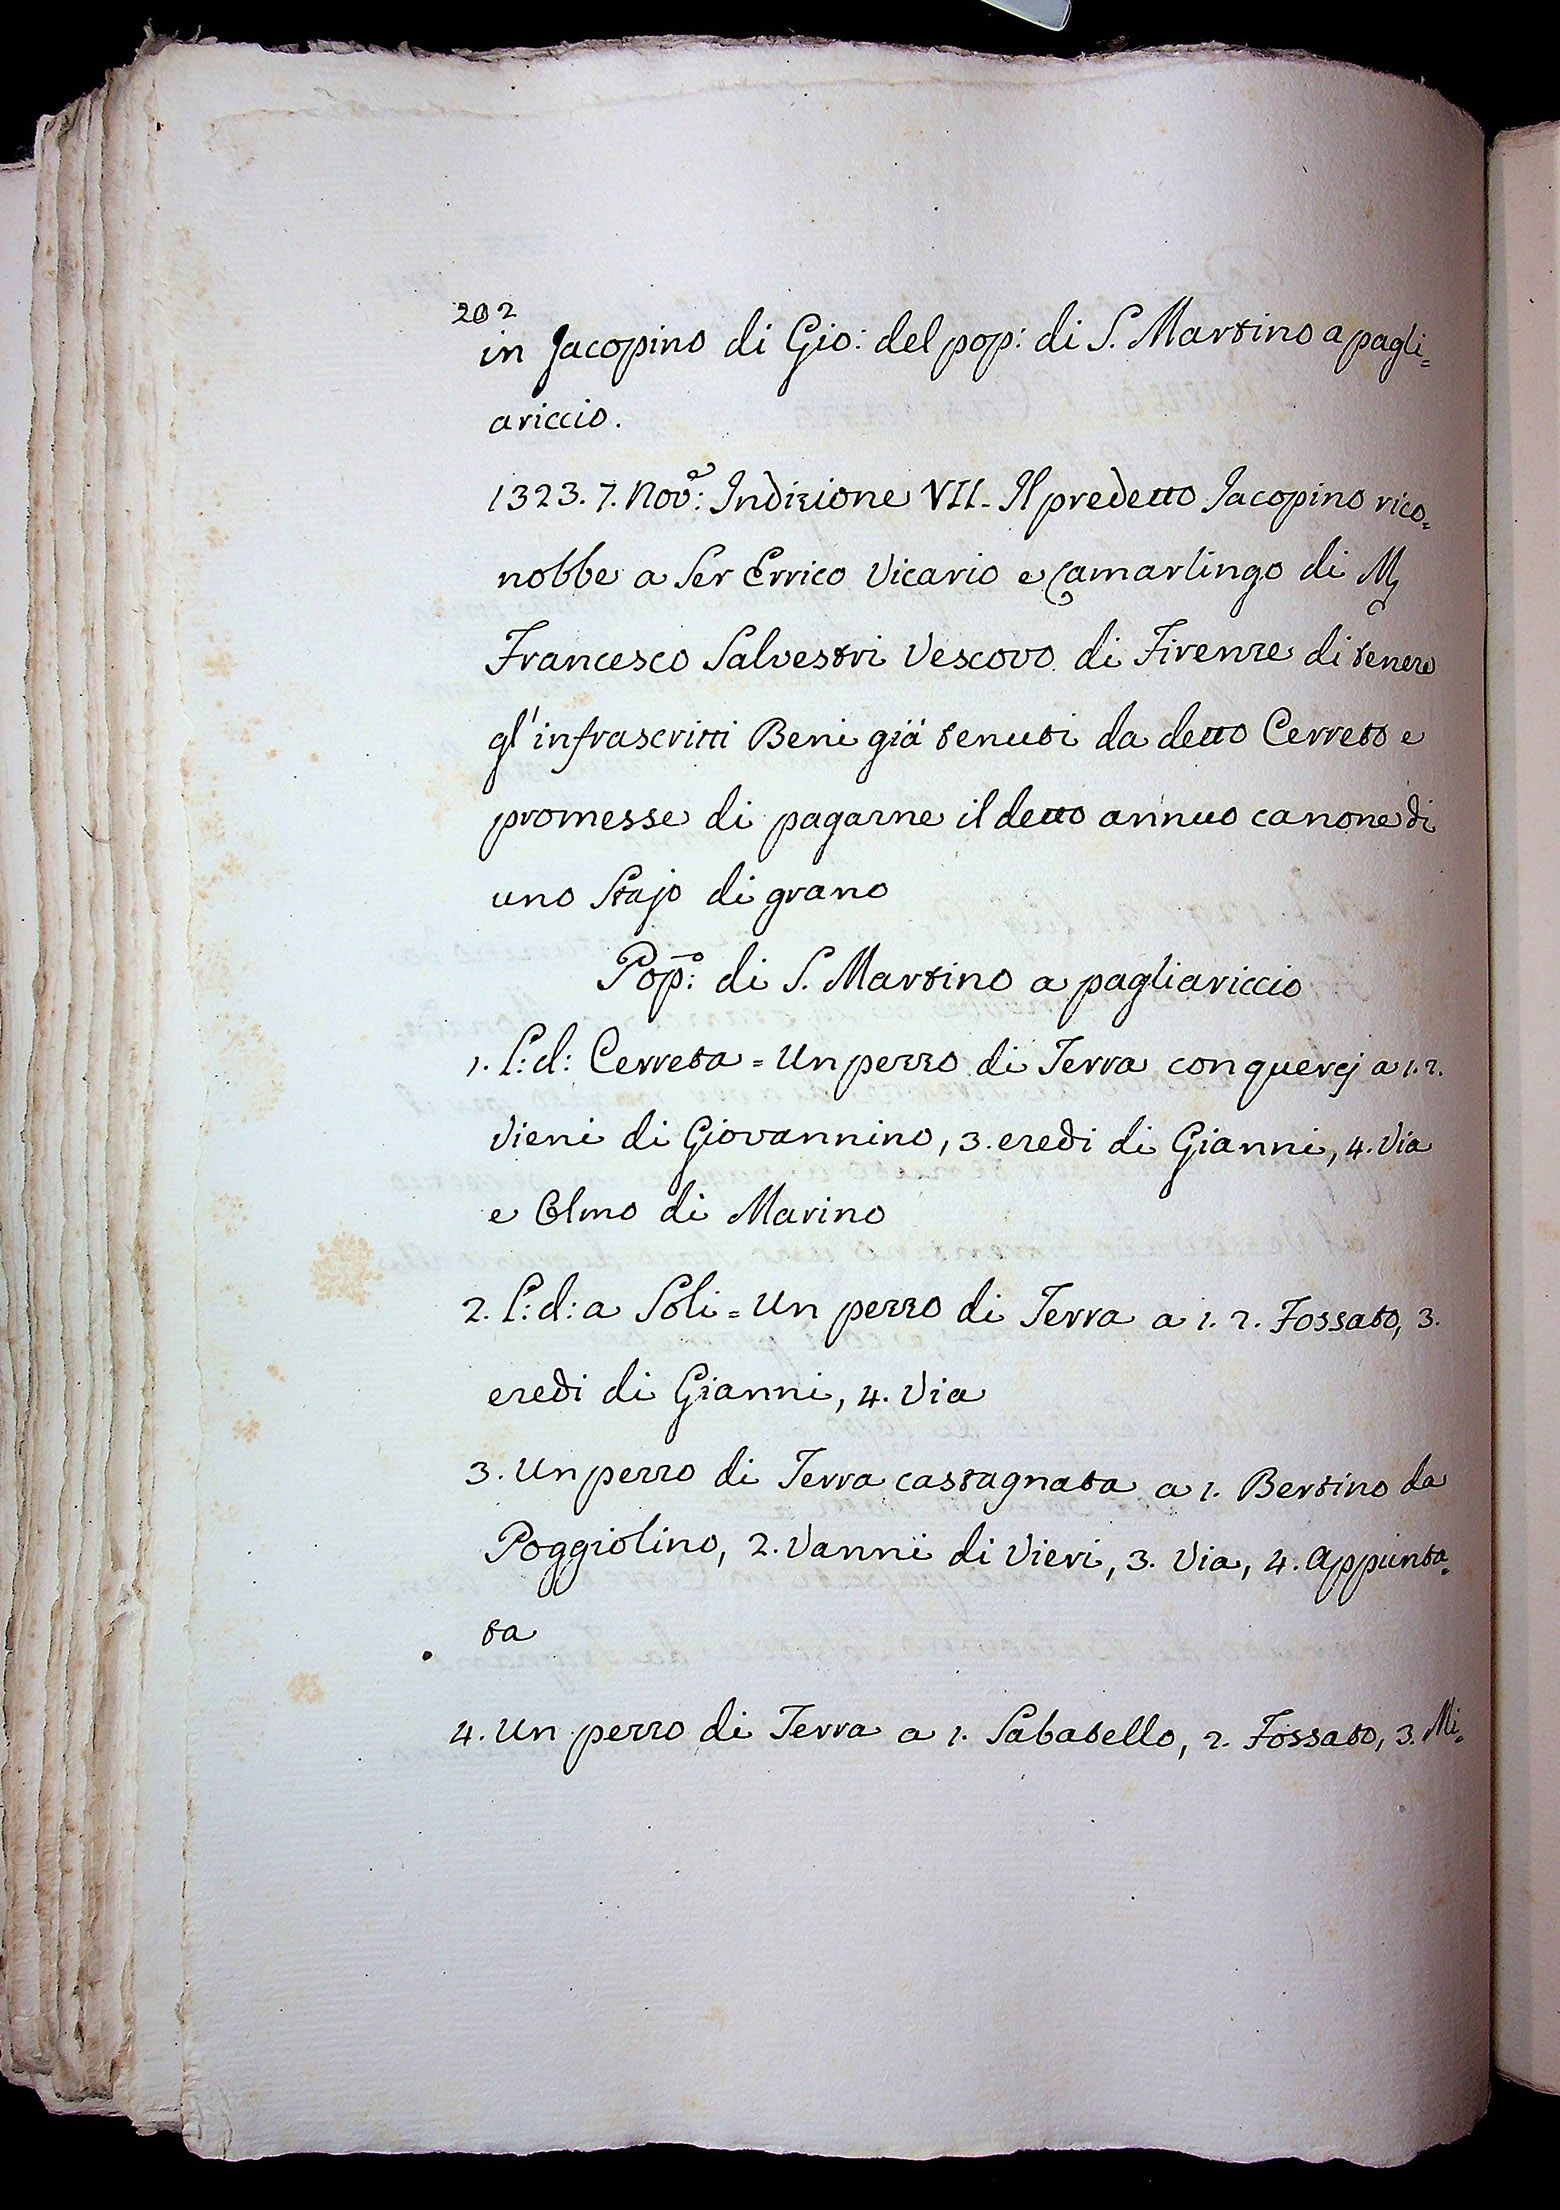 202
in Jacopino di Gio: del pop: di S. Martino a pagli=
ariccio.
1323. 7. Nov.e: Indizione VII. Il predetto Jacopino rico=
nobbe a Ser Errico Vicario e Camarlingo di M
Francesco Salvestri Vescovo di Firenze di tenere
gl'infrascritti Beni già tenuti da detto Cerreto e
promesse di pagarne il detto annuo canone di
uno Stajo di grano
Pop.o: di S. Martino a pagliariccio
1. L: d: Cerreta = Un pezzo di Terra con quercj a 1. 2.
Vieni di Giovannino, 3. eredi di Gianni, 4. Via
e Olmo di Marino
2. L: d: a Soli = Un pezzo di Terra a 1. 2. Fossato, 3.
eredi di Gianni, 4. Via
3. Un pezzo di Terra castagnata a 1. Bertino da
Poggiolino, 2. Vanni di Vieri, 3. Via, 4. Appunta=
ta
4. Un pezzo di Terra a 1. Sabatello, 2. Fossato, 3. Mi=